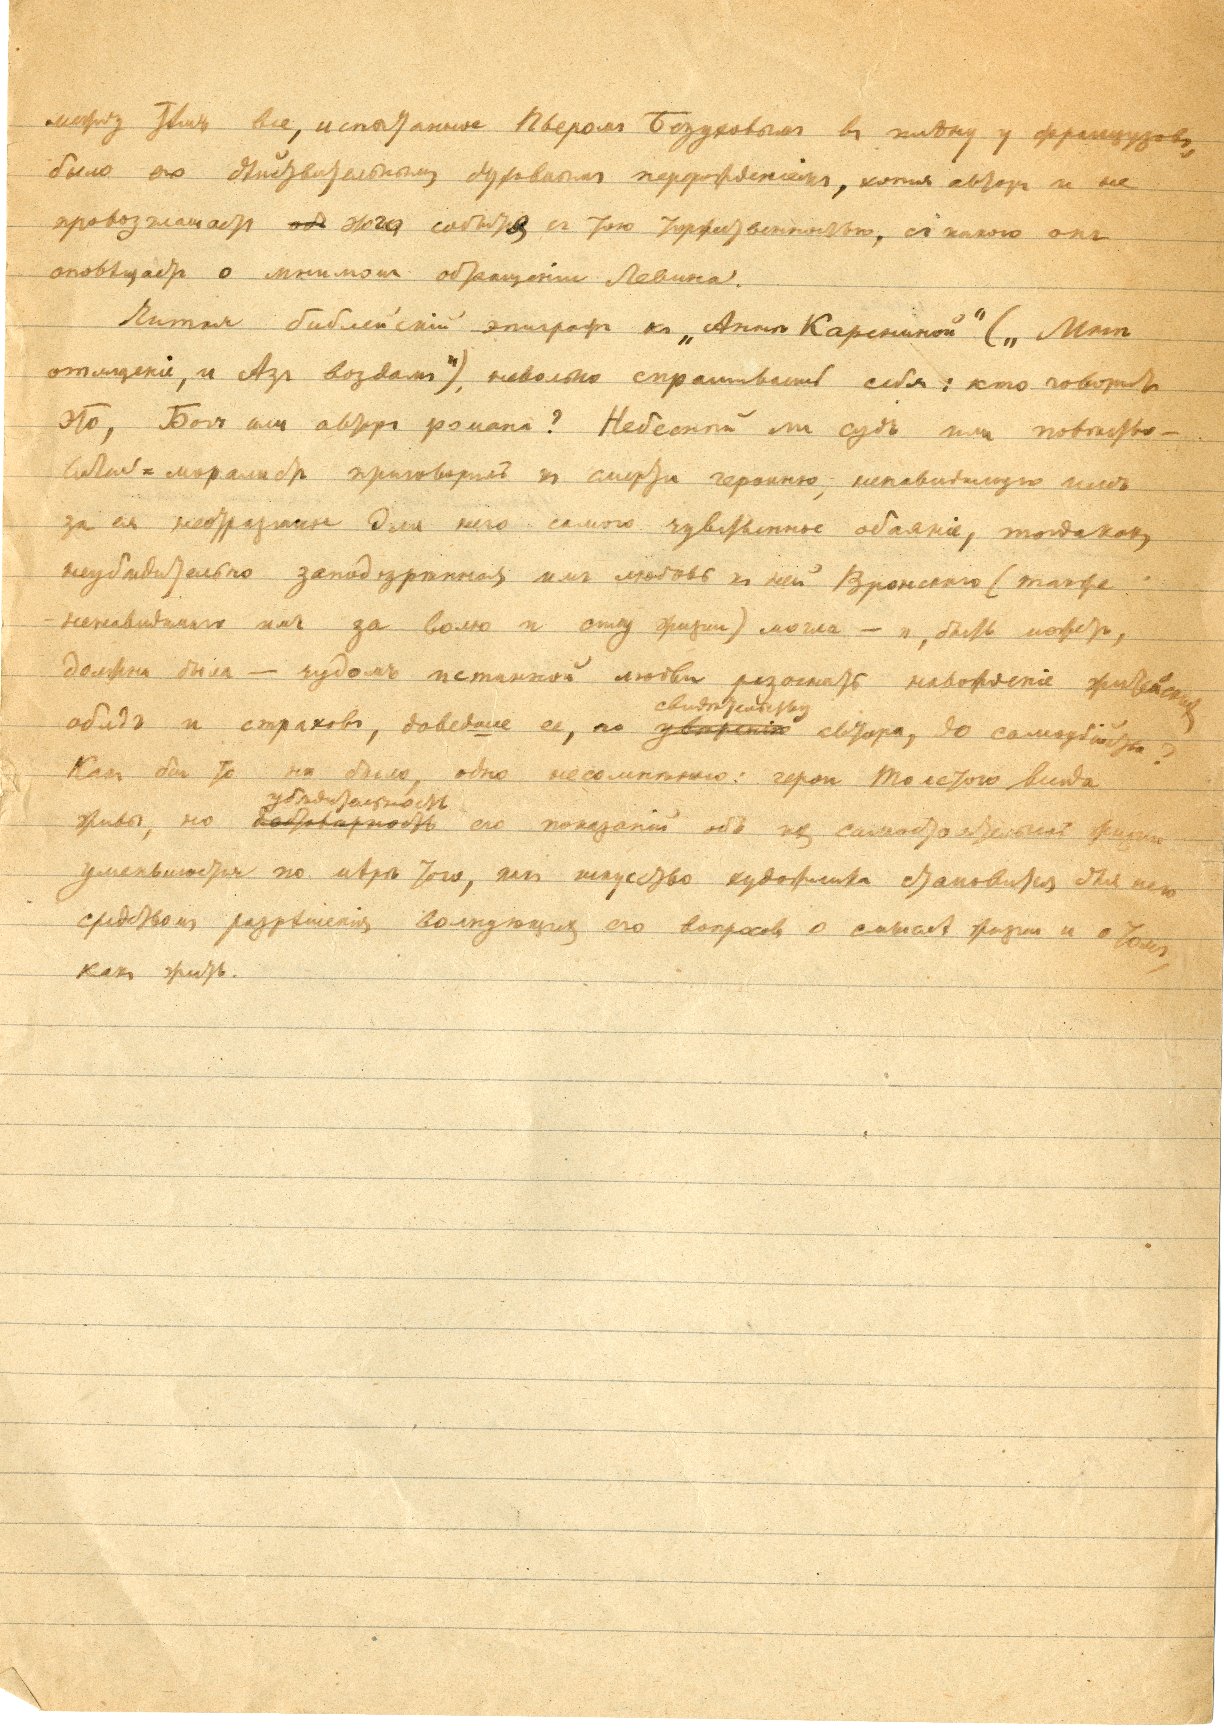 между тѣмъ все, испытанное Пьеромъ Безуховымъ въ плѣну у французовъ,
было его дѣйствительнымъ духовнымъ перерожденіемъ, хотя авторъ и не
провозглашаетъ об этого событія съ тою торжественностью, съ какою онъ
оповѣщаетъ о мнимомъ обращеніи Левина.
Читая библейскій эпиграфъ къ „Аннѣ Карениной" („Мнѣ
отмщеніе, и Азъ воздамъ"), невольно спрашиваешь себя: кто говоритъ
это, Богъ или авторъ романа? Небесный ли судъ или повѣство-
ватель-моралистъ приговорилъ къ смерти героиню, ненавидимую имъ
за ея неотразимое для него самого чувственное обаяніе, тогда какъ
неубѣдительно заподозрѣнная имъ любовь къ ней Вронскаго (также
ненавидимаго имъ за волю къ жизни) могла — и, быть можетъ,
должна была — чудомъ истинной любви разогнать навожденіе житейскихъ
обидъ и страховъ, доведшее ее, по увѣренію свидѣтельству автора, до самоубійства?
Какъ бы то ни было, одно несомнѣнно: герои Толстого всегда
живы, но достовѣрность убѣдительность его показаній объ ихъ самостоятельной жизни
уменьшается по мѣрѣ того, какъ искусство художника становится для него
средствомъ разрѣшенія волнующихъ его вопросовъ о смыслѣ жизни и о томъ,
какъ жить.